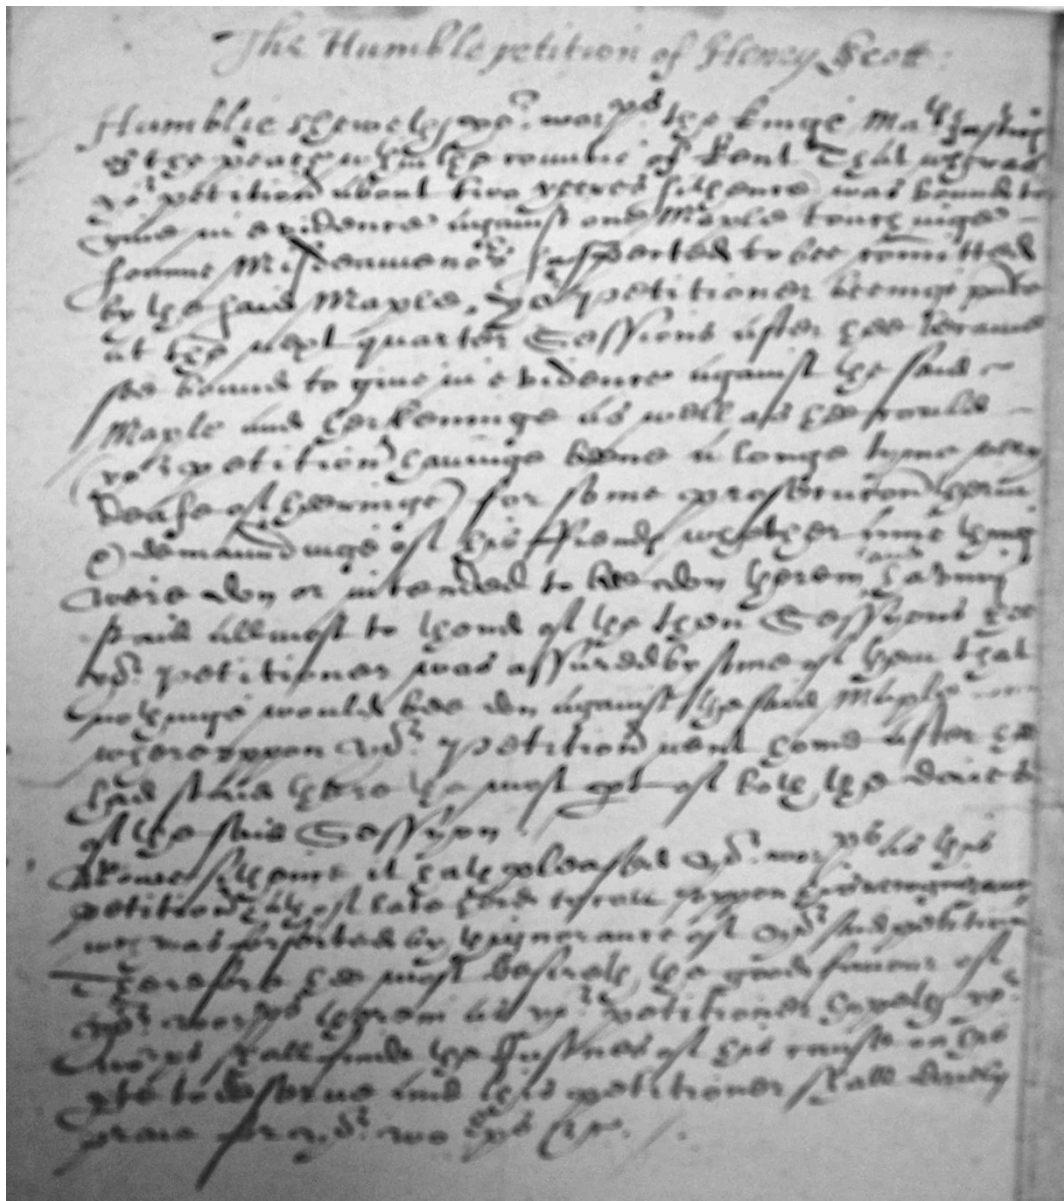 The Humble petition of Henry Scott:
Humblie sheweth yor. worps the kings Matis Justices
of the peace wthin the countie of Kent That wheras
yor petition about two yeeres sithence was bound to
give in evidence against one Maple touchinge
some Misdeamenors suspected to bee comitted
by the said Maple, yor petitioner beeinge pnte
at the next quarter Sessions after hee became
soe bound to give in evidence against the said
Maple and herkeninge as well as hee could
(yor petition havinge beene a longe tyme very
deafe of heeringe) for some prosecucon therin
& demaundinge of his ffrends whether anie thing
were don or intended to bee don therein and havinge
staid allmost to thend of the then Sessyons hee
yor petitioner was assured by some of them that
nothinge would bee don against the said Maple
whereuppon yor petition went home after hee
had staid there the most pt of both the daies
of the said Sessyon
Howe sithence it hath pleased yor. worps as this
petition hath of late herd to call uppon his recognizance
wch was forfeited by thignorance of yor said petition
Therefore hee most desireth the good favour of
yor worps therein as yor petitioner hopeth yor
worps shall finde the Justnes of his cause on his
pte to deserve and this petitioner shall dailie
praie for yor. worps &c.